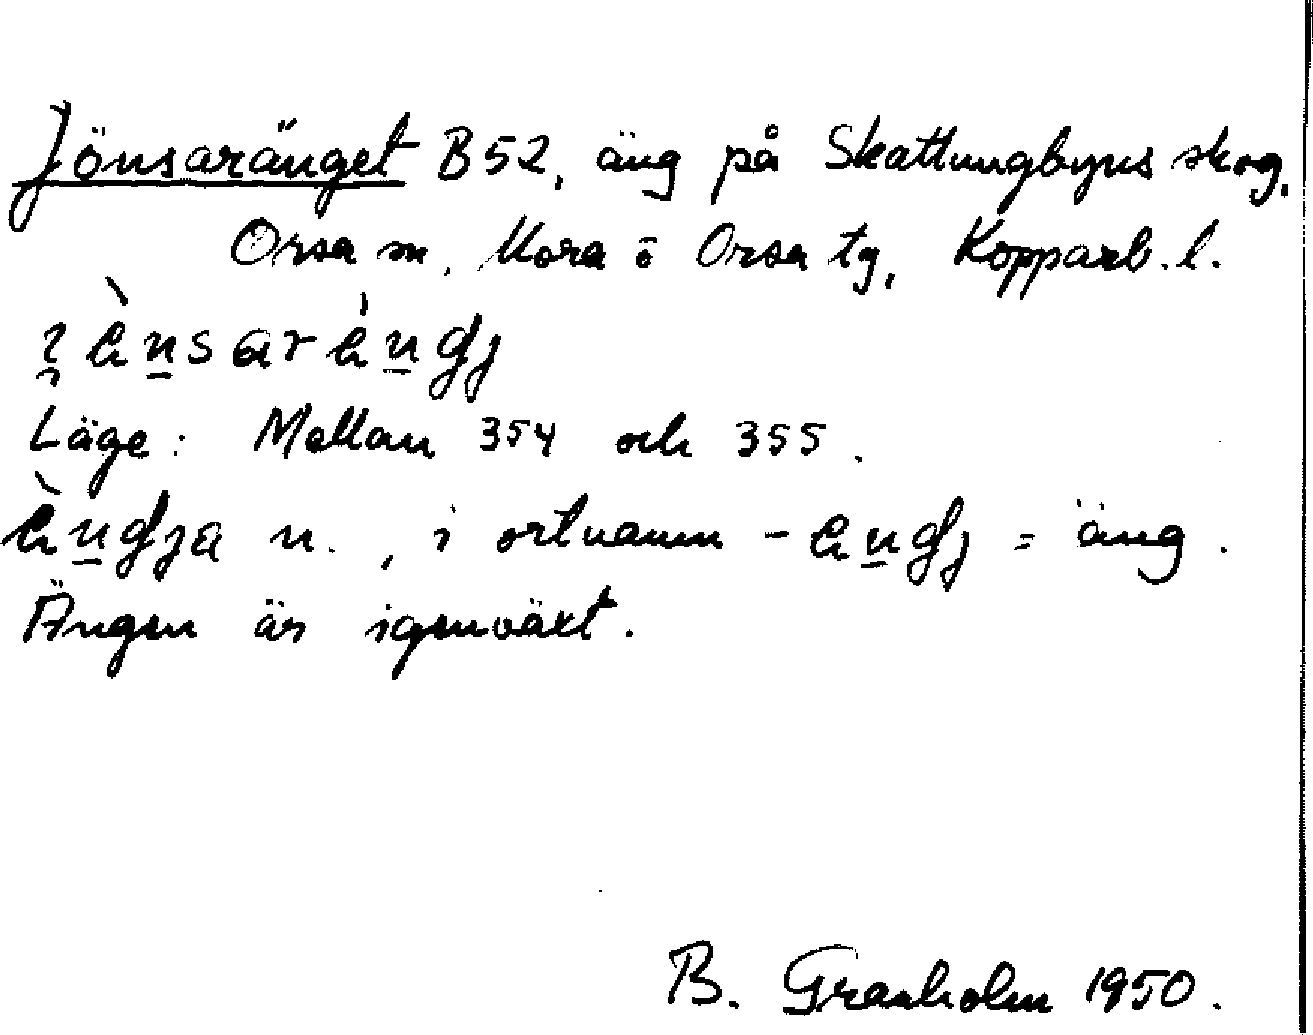 Jönsaränget B52, äng på Skattungbyns skog,
Orsa sn, Mora o Orsa tg, Kopparb. l.
Läge: Mellan 354 och 355.
n., i ortnamn - = äng.
Ängen är igenväxt.
B. Granholm 1950.